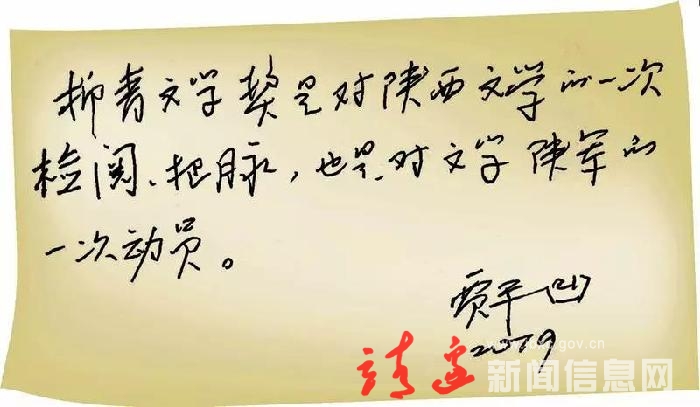 柳青文学奖是对陕西文学的一次
检阅、把脉，也是对文学陕军的
一次动员。
贾平凹
2019
靖边
新闻信息网